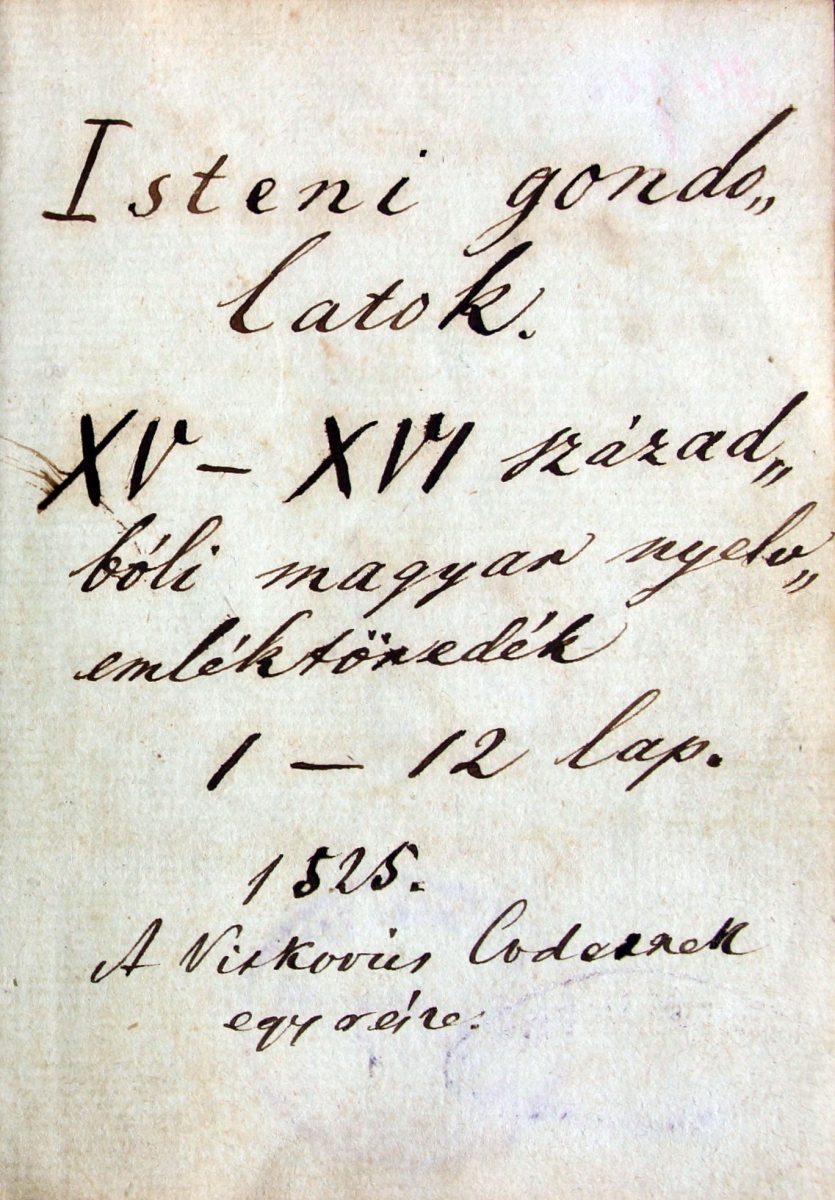 Isteni gondo„
latok.
XV – XVI század„
bóli magyar nyelv„
emléktöredék
1 – 12 lap.
1525.
A Viskovius Codexnek
egy része.